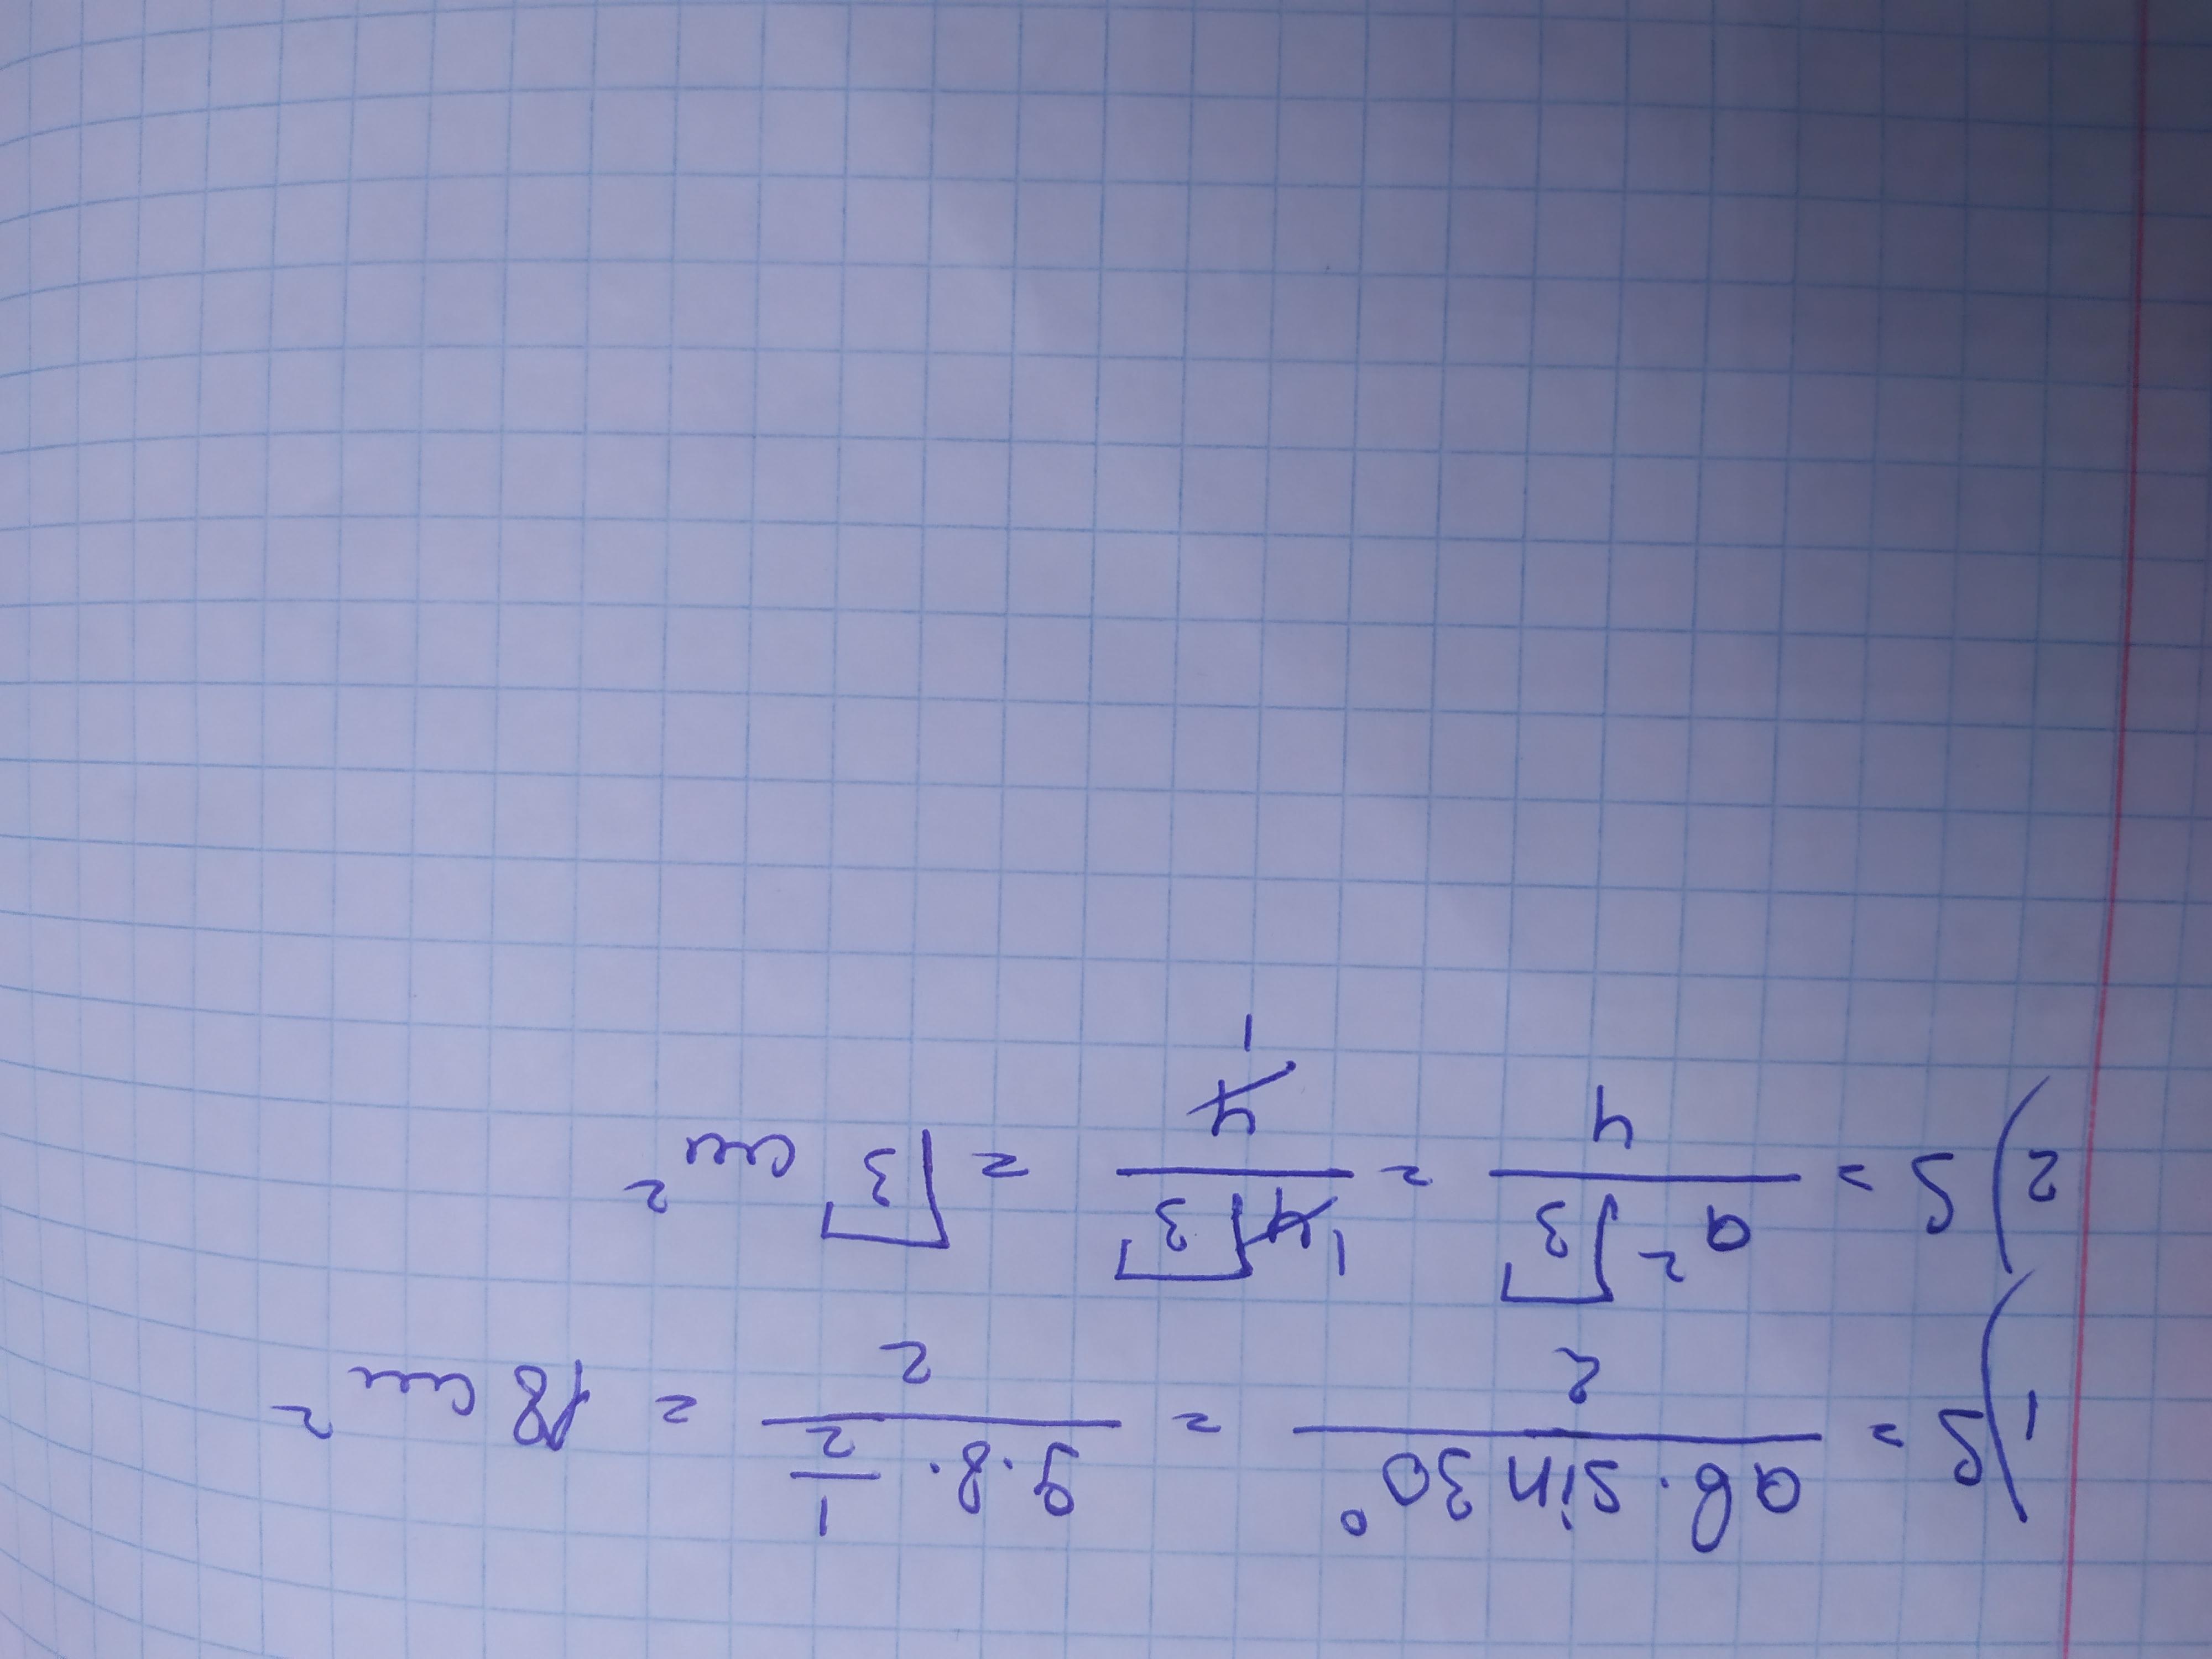 1) S = \frac{ab \cdot \sin 30°}{2} = \frac{9 \cdot 8 \cdot \frac{1}{2}}{2} = 18 см²
2) S = \frac{a²\sqrt{3}}{4} = \frac{\cancel{4}^{1}\sqrt{3}}{\cancel{4}_{1}} = \sqrt{3} см²